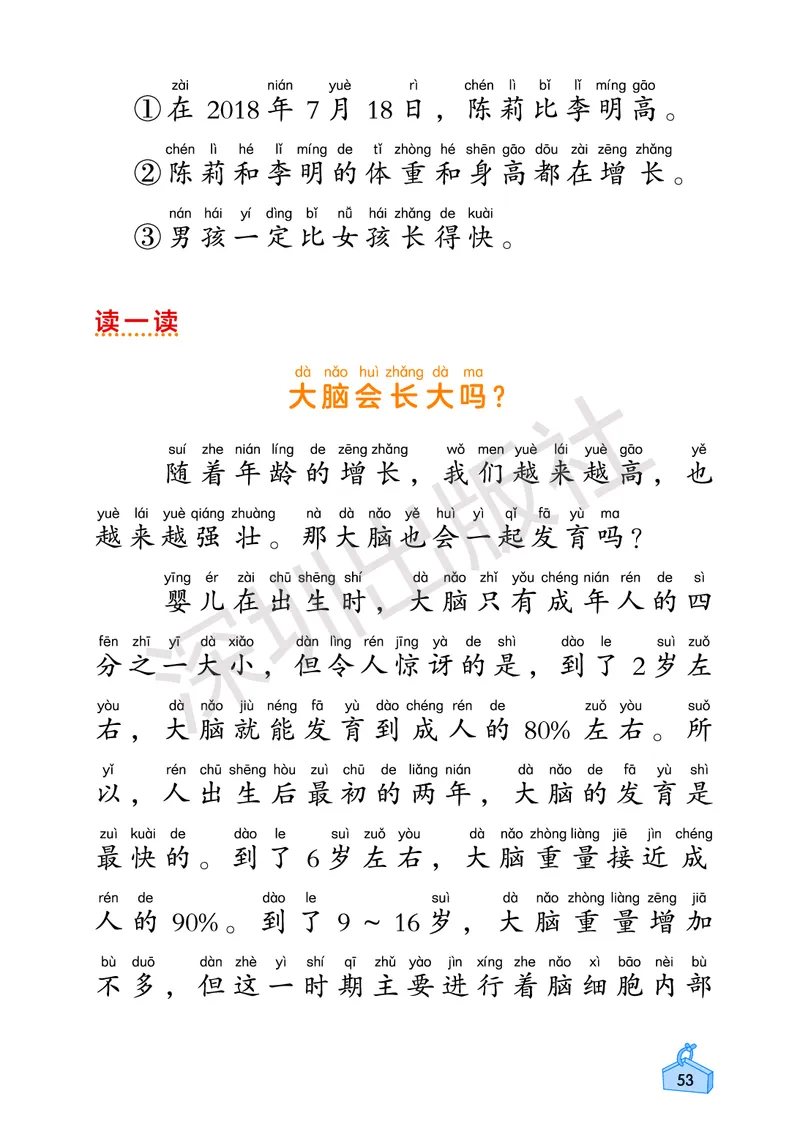 zài nián yuè rì chén lì bǐ lǐ míng gāo
①在 2018 年 7 月 18 日，陈莉比李明高。
chén lì hé lǐ míng de tǐ zhòng hé shēn gāo dōu zài zēng zhǎng
②陈莉和李明的体重和身高都在增长。
nán hái yí dìng bǐ nǚ hái zhǎng de kuài
③男孩一定比女孩长得快。
读一读
dà nǎo huì zhǎng dà ma
大脑会长大吗？
suí zhe nián líng de zēng zhǎng wǒ men yuè lái yuè gāo yě
随着年龄的增长，我们越来越高，也
yuè lái yuè qiáng zhuàng nà dà nǎo yě huì yì qǐ fā yù ma
越来越强壮。那大脑也会一起发育吗？
yīng ér zài chū shēng shí dà nǎo zhǐ yǒu chéng nián rén de sì
婴儿在出生时，大脑只有成年人的四
fēn zhī yī dà xiǎo dàn lìng rén jīng yà de shì dào le suì zuǒ
分之一大小，但令人惊讶的是，到了 2 岁左
yòu dà nǎo jiù néng fā yù dào chéng rén de zuǒ yòu suǒ
右，大脑就能发育到成人的 80% 左右。所
yǐ rén chū shēng hòu zuì chū de liǎng nián dà nǎo de fā yù shì
以，人出生后最初的两年，大脑的发育是
zuì kuài de dào le suì zuǒ yòu dà nǎo zhòng liàng jiē jìn chéng
最快的。到了 6 岁左右，大脑重量接近成
rén de dào le suì dà nǎo zhòng liàng zēng jiā
人的 90%。到了 9 ~ 16 岁，大脑重量增加
bù duō dàn zhè yì shí qī zhǔ yào jìn xíng zhe nǎo xì bāo nèi bù
不多，但这一时期主要进行着脑细胞内部
深圳出版社
53